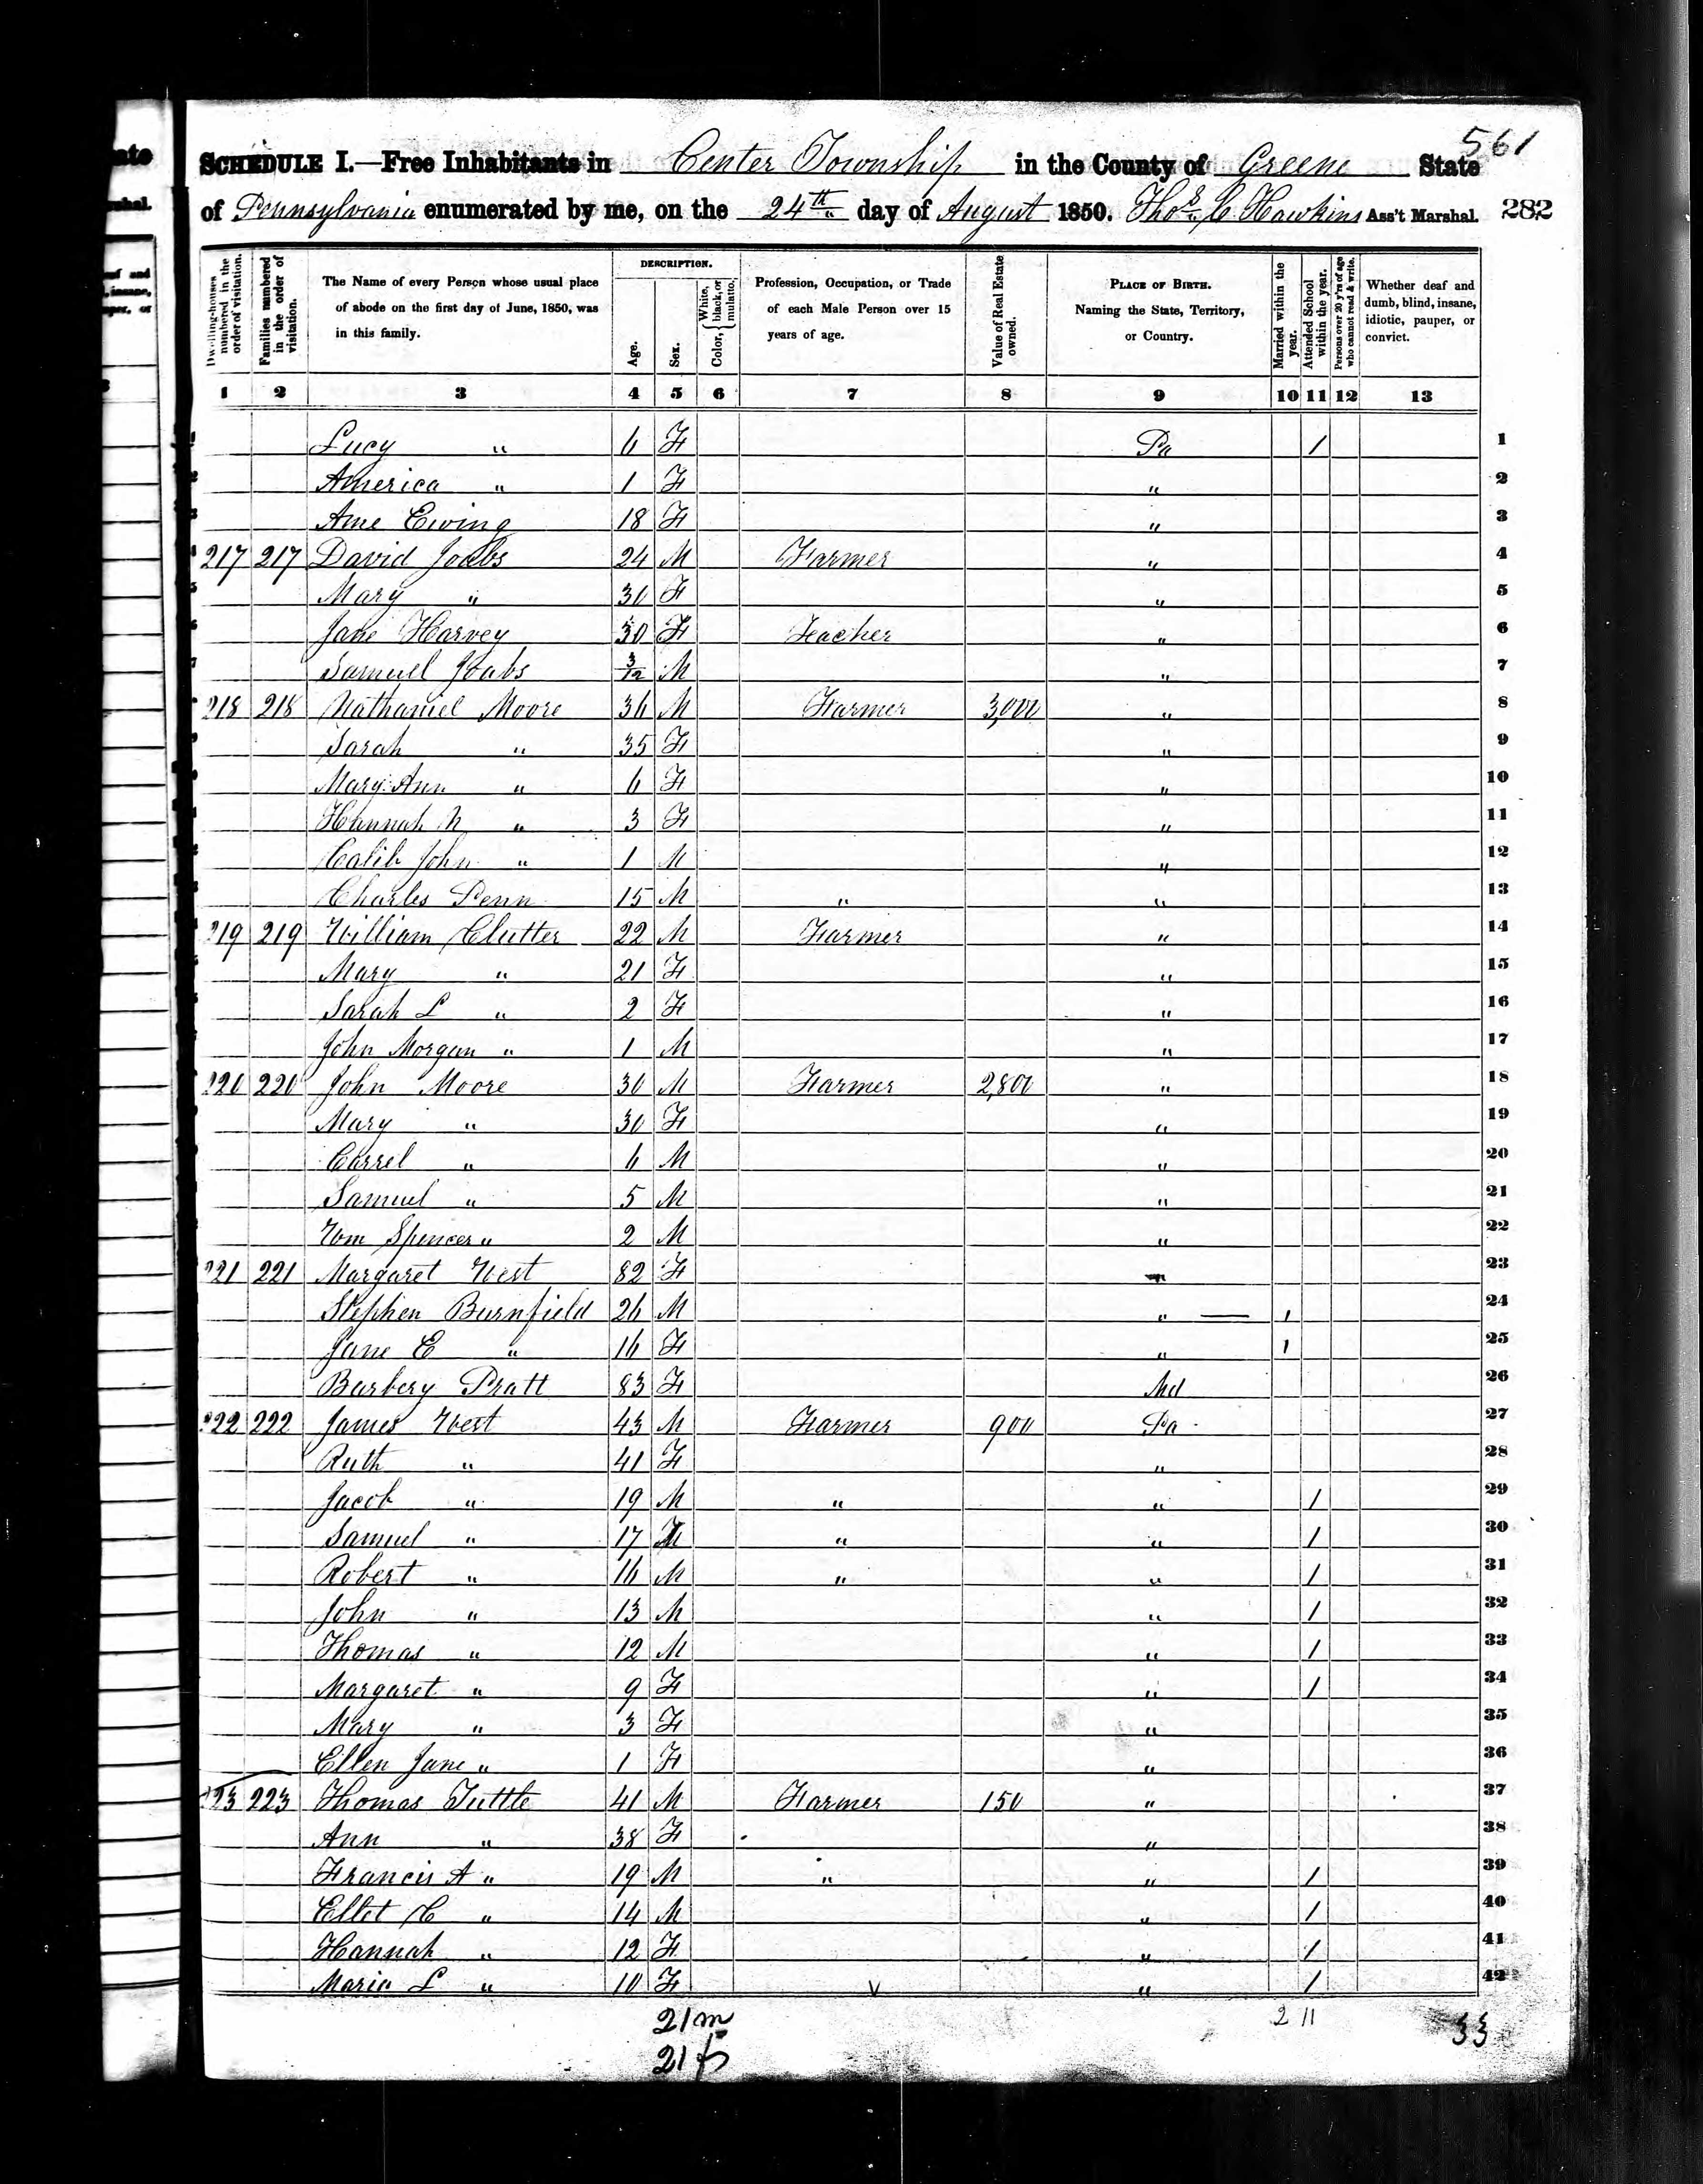 561
SCHEDULE I.—Free Inhabitants in Center Township in the County of Greene State
of Pennsylvania enumerated by me, on the 24th day of August 1850. Thos C Hawkins Ass't Marshal. 282
Dwelling-houses numbered in the order of visitation.
Families numbered in the order of visitation.
The Name of every Person whose usual place of abode on the first day of June, 1850, was in this family.
DESCRIPTION.
Age.
Sex.
Color, { White, black, or mulatto.
Profession, Occupation, or Trade of each Male Person over 15 years of age.
Value of Real Estate owned.
PLACE OF BIRTH. Naming the State, Territory, or Country.
Married within the year.
Attended School within the year.
Persons over 20 y'rs of age who cannot read & write.
Whether deaf and dumb, blind, insane, idiotic, pauper, or convict.
1 2 3 4 5 6 7 8 9 10 11 12 13
Lucy " 6 F Pa 1 1
America " 1 F " 2
Ame Ewing 18 F " 3
217 217 David Joabs 24 M Farmer " 4
Mary " 30 F " 5
Jane Harvey 30 F Teacher " 6
Samuel Joabs 3/12 M " 7
218 218 Nathaniel Moore 36 M Farmer 3,000 " 8
Sarah " 35 F " 9
Mary Ann " 6 F " 10
Hannah N " 3 F " 11
Calib John " 1 M " 12
Charles Penn 15 M " " 13
219 219 William Clutter 22 M Farmer " 14
Mary " 21 F " 15
Sarah L " 2 F " 16
John Morgan " 1 M " 17
220 220 John Moore 30 M Farmer 2,800 " 18
Mary " 30 F " 19
Correl " 6 M " 20
Samuel " 5 M " 21
Wm Spencer " 2 M " 22
221 221 Margaret West 82 F " 23
Stephen Burnfield 26 M " — 1 24
Jane E " 16 F " 1 25
Barbery Pratt 83 F Md 26
222 222 James West 43 M Farmer 900 Pa 27
Ruth " 41 F " 28
Jacob " 19 M " " 1 29
Samuel " 17 M " " 1 30
Robert " 16 M " " 1 31
John " 13 M " 1 32
Thomas " 12 M " 1 33
Margaret " 9 F " 1 34
Mary " 3 F " 35
Ellen Jane " 1 F " 36
223 223 Thomas Tuttle 41 M Farmer 150 " 37
Ann " 38 F " 38
Francis A " 19 M " " 1 39
Ellet C " 14 M " 1 40
Hannah " 12 F " 1 41
Maria L " 10 F " 1 42
21 m 2 11 33
21 f